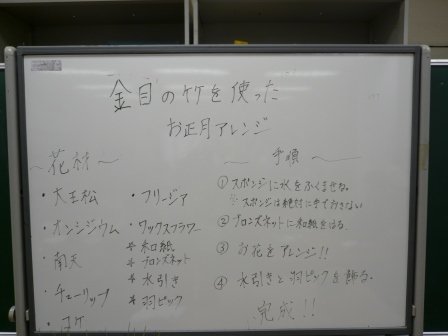 金目の竹を使った
お正月アレンジ
~花材~
・大王松
・オンシジウム
・南天
・チューリップ
・コケ
・フリージア
・ワックスフラワー
＊和紙
＊ブロンズネット
＊水引き
＊羽ピック
~手順~
① スポンジに水をふくませる。
スポンジは絶対に
② ブロンズネットに和紙をはる。
③ お花をアレンジ!!
④ 水引きと羽ピックを飾る。
完成!!